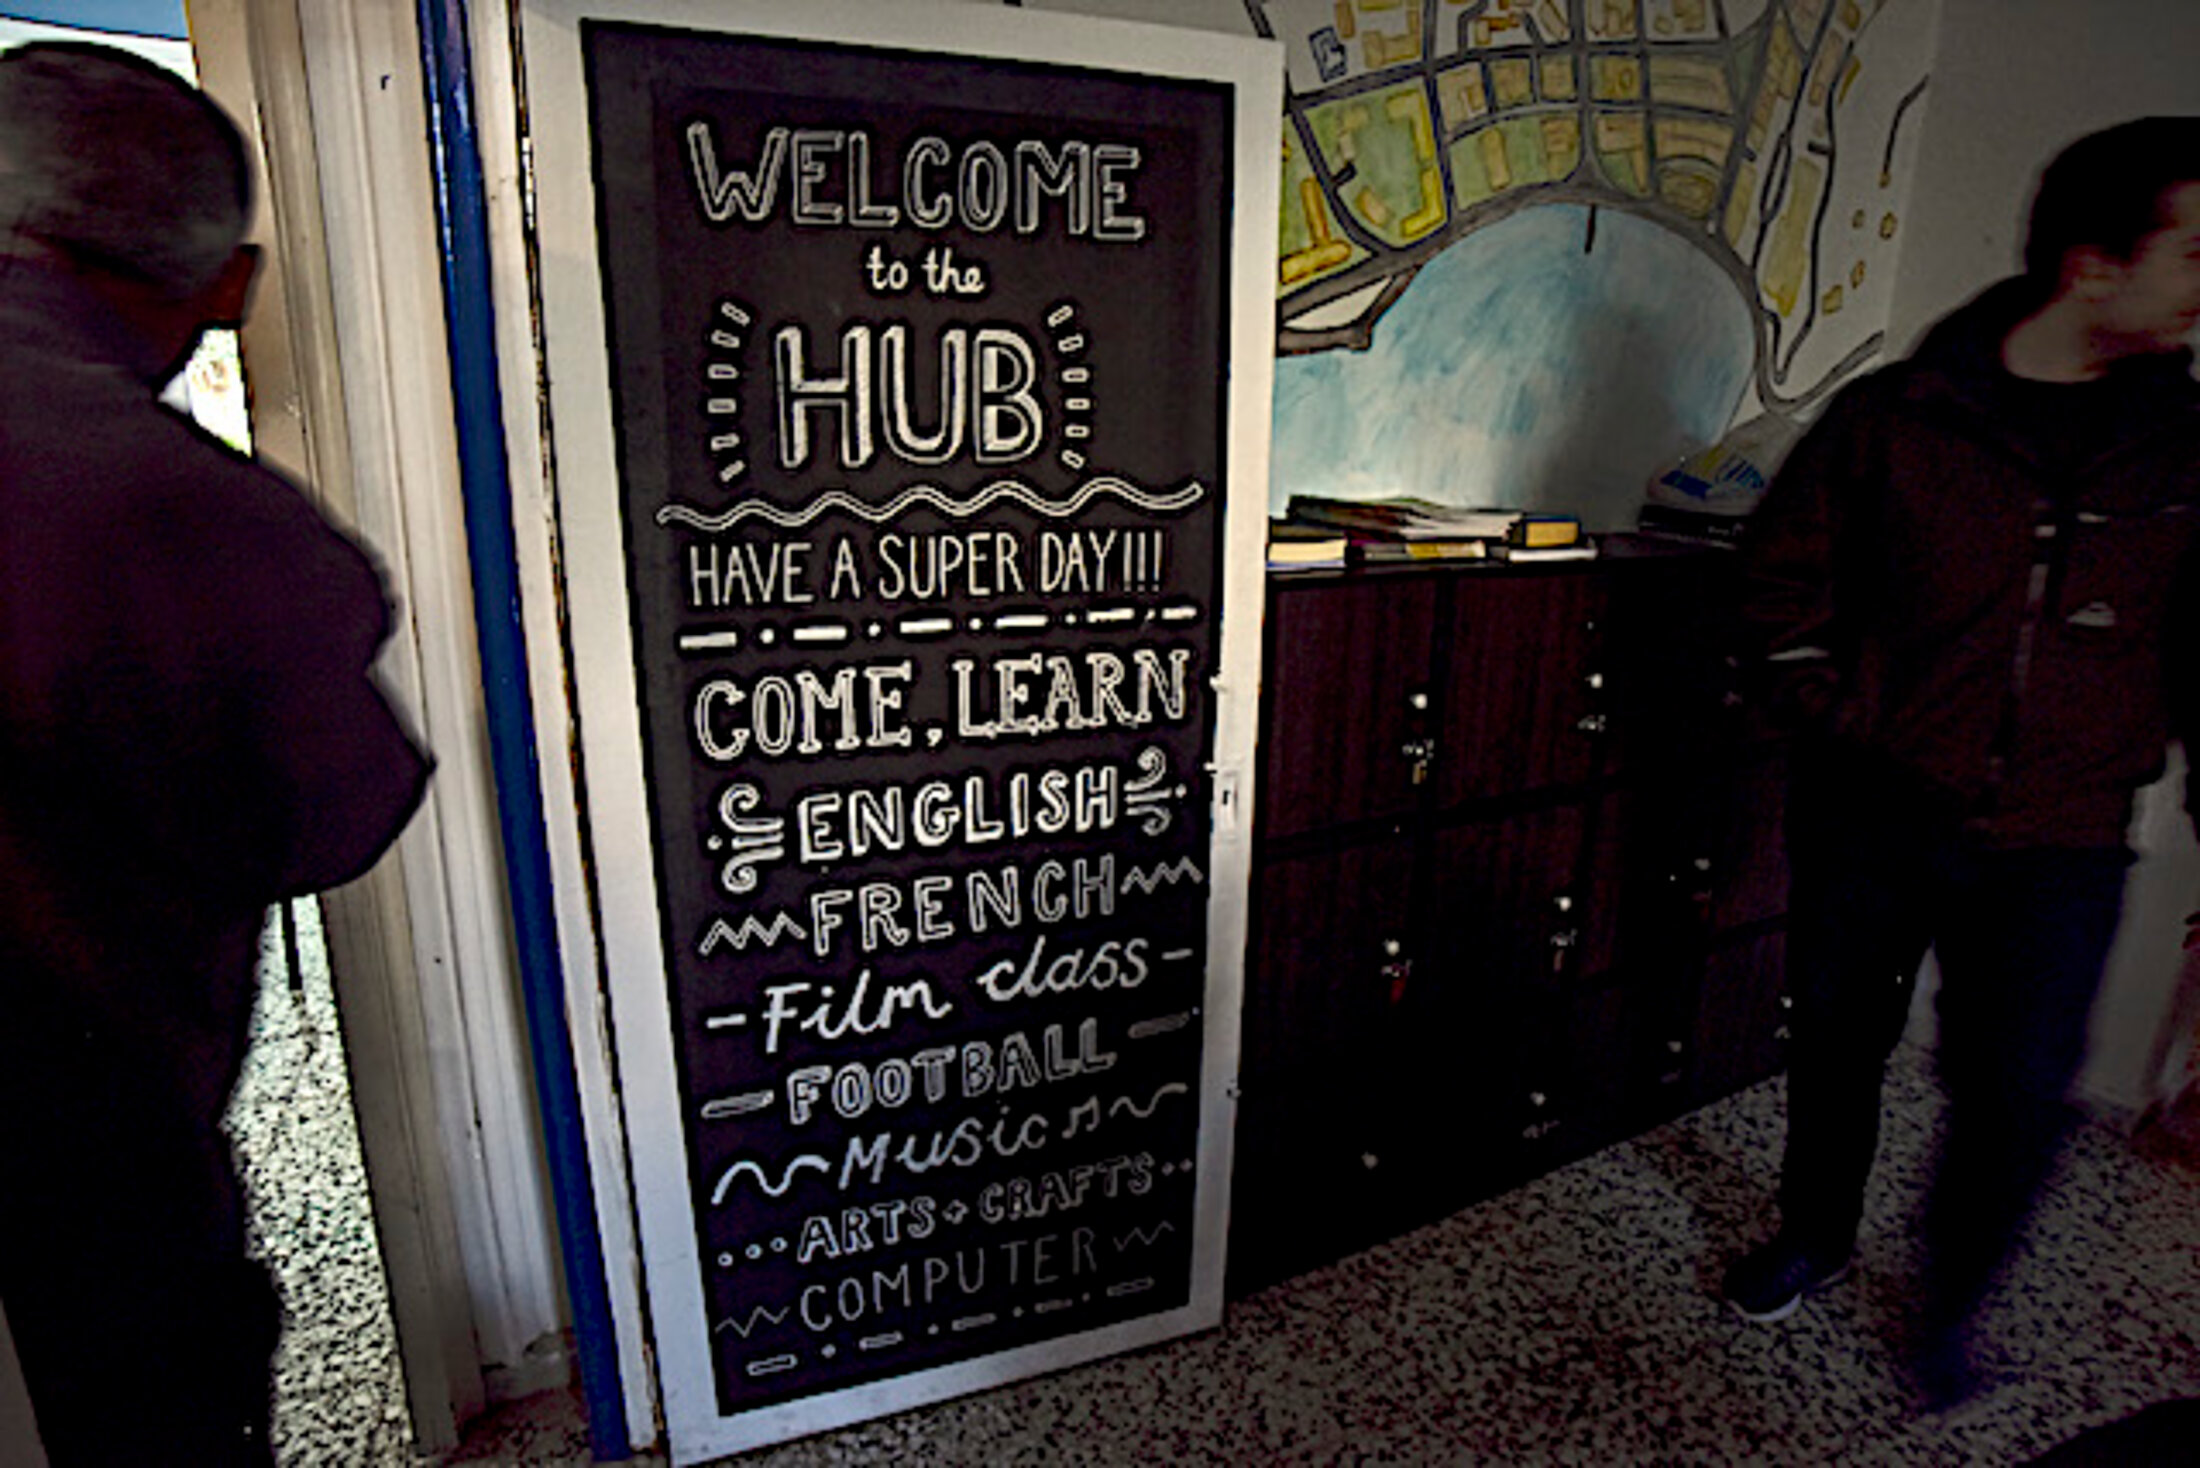 WELCOME
to the
HUB
HAVE A SUPER DAY!!!
COME, LEARN
ENGLISH
FRENCH
- Film class -
- FOOTBALL -
Music
... ARTS + CRAFTS ..
COMPUTER